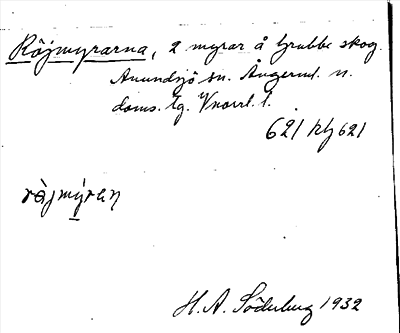 Röjmyrarna, 2 myrar å Grubbe skog.
Anundsjö sn. Ångerml. n.
doms. tg. Vnorrl. l.
621 hbg 621
ròjmýran
H. A. Söderberg 1932